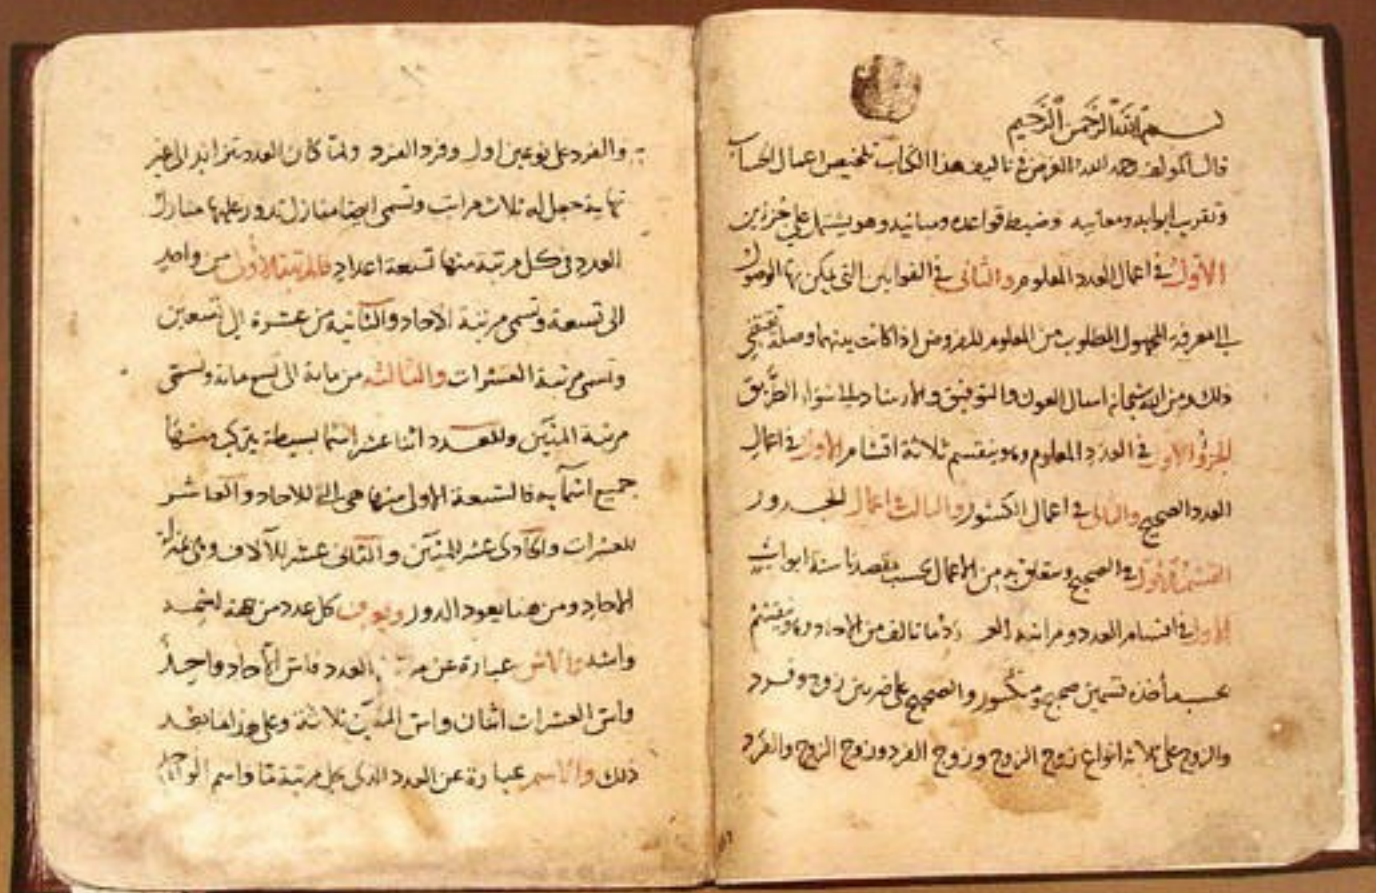 بسم الله الرحمن الرحيم
قال المولف رحمه الله الغرض في تاليف هذا الكتاب تلخيص اعمال الحساب
وتقريب ابوابه ومعانيه وضبط قواعده ومبانيه وهو يشتمل علي جزئين
الأول في اعمال العدد المعلوم والثاني في القوانين التي يمكن بها الوصول
الي معرفة المجهول المطلوب من المعلوم المفروض اذا كانت بينهما وصلة تقتضي
ذلك ومن الله سبحانه اسال العون والتوفيق والارشاد الي سواء الطريق
الجزؤ الاول في العدد المعلوم وهو ينقسم ثلاثة اقسام الاول في اعمال
العدد الصحيح والثاني في اعمال الكسور والثالث اعمال الجدور
القسم الاول في الصحيح وينقسم من الاعمال بحسب مقصدنا ستة ابواب
الاول في اقسام العدد ومراتبه العدد ما تالف من الاحاد وهو ينقسم
بحسب مأخذه قسمين صحيح ومكسور والصحيح على ضربين زوج وفرد
والزوج على ثلاثة انواع زوج الزوج وزوج الفرد وزوج الزوج والفرد
والفرد على نوعين اول وفرد الفرد ولما كان العدد يتزايد الى غير
نهاية جعل له ثلاث مراتب وتسمى ايضا منازل تدور عليها منازل
العدد في كل مرتبة منها تسعة اعداد فالمرتبة الأولى من واحد
الى تسعة وتسمى مرتبة الاحاد والثانية من عشرة الى تسعين
وتسمى مرتبة العشرات والثالثة من ماية الى تسع ماية وتسمى
مرتبة المئين وللعدد اثنا عشر اسما بسيطة يتركب منها
جميع اسمآيه فالتسعة الاولى منها هي للاحاد والعاشر
للعشرات والحادى عشر للمئين والثانى عشر للآلاف وهي بمنزلة
الاحاد ومن هنا يعود الدور ويعرف كل عدد من هذه
واسه والاس عبارة عن مرتبة العدد فاس الآحاد واحد
واس العشرات اثنان واس المئين ثلاثة وعلى هذا فما بعد
ذلك والاسم عبارة عن العدد الذى بكل مرتبة ما واسم